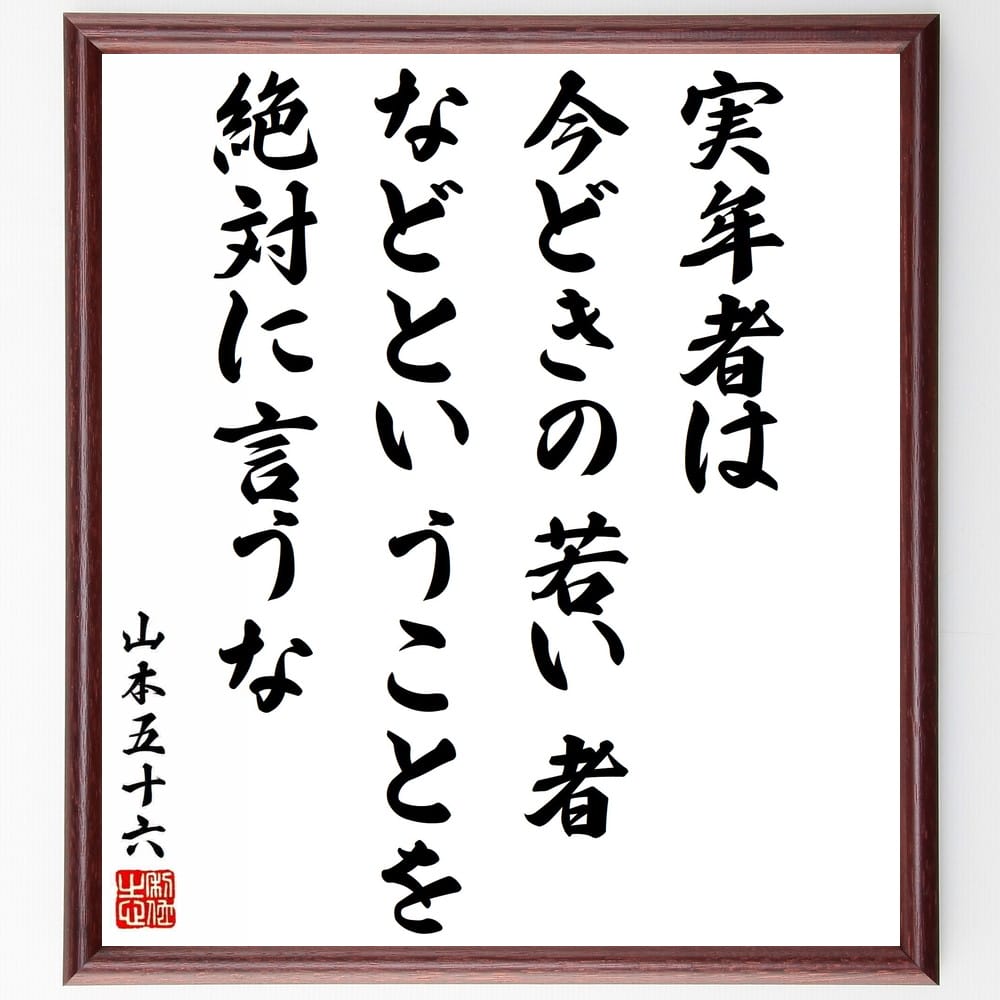 実年者は
今どきの若い者
などということを
絶対に言うな
山本五十六